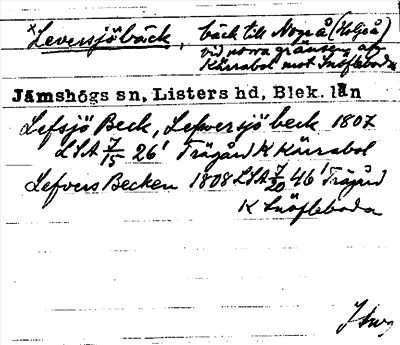 ×Leversjöbäck, bäck till Nogrå (Holjeå)
vid norra gränsen af
Kärrabol mot Snöfleboda
Jämshögs sn, Listers hd, Blek. län
Lefsjö Beck, Lefwersjö beck 1807
LSA 7/15 26' Trägård K Kärrabol
Lefvers Becken 1808 LSA 7/20 46' Trägård
K Snöfleboda